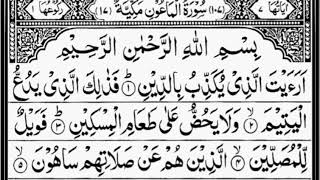 اٰيَاتُهَا ٧ (١٠٧) سُوْرَةُ الْمَاعُوْنِ مَكِّيَّةٌ (١٧) رُكُوْعُهَا ١
بِسْمِ اللّٰهِ الرَّحْمٰنِ الرَّحِيْمِ
اَرَءَيْتَ الَّذِىْ يُكَذِّبُ بِالدِّيْنِ ۝١ فَذٰلِكَ الَّذِىْ يَدُعُّ
الْيَتِيْمَ ۝٢ وَلَا يَحُضُّ عَلٰى طَعَامِ الْمِسْكِيْنِ ۝٣ فَوَيْلٌ
لِّلْمُصَلِّيْنَ ۝٤ الَّذِيْنَ هُمْ عَنْ صَلَاتِهِمْ سَاهُوْنَ ۝٥